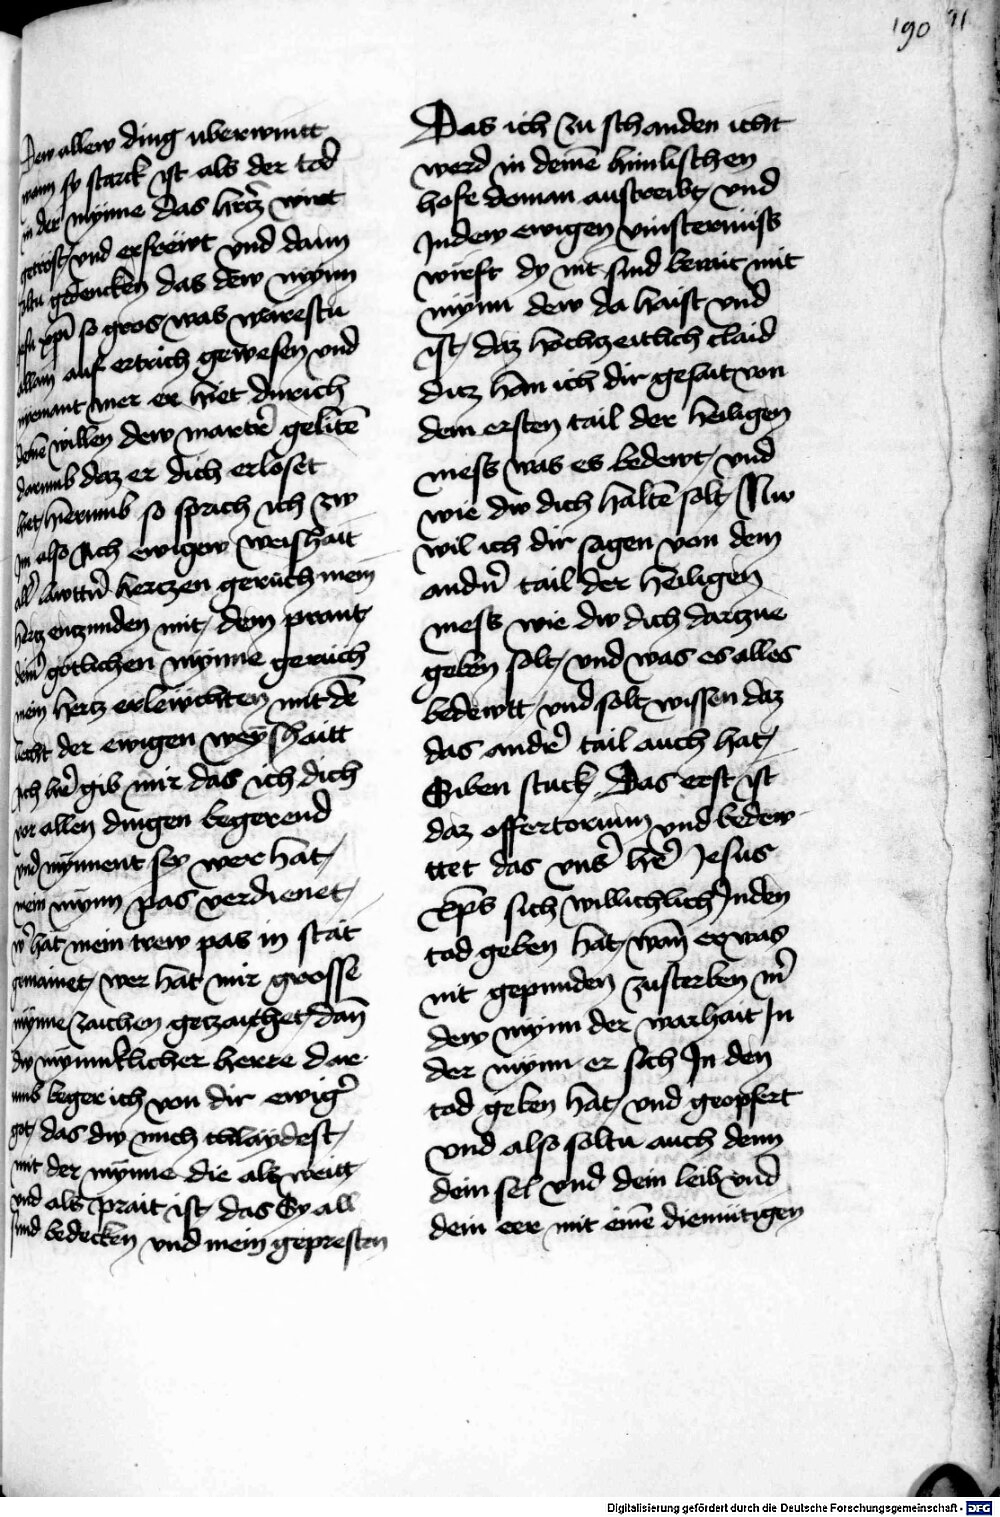 190
Dew allew ding uberwintt
wann sy starck ist als der tod
in der mynne das hercz wirt
getrost und erfrewt und dann
soltu gedencken das dew mynn
jesu xpi so gros was warestu
allain auf ertrich gewesen und
niemant mer er hiet durich
deinē willen dew martr̄ gelitē
darumb daz er dich erloset
hiet hierumb so sprich ich zw
im also Ach ewigew weishait
all̄ lawttr̄ herczen geruch mein
hercz enczunden mit dem prant
dein̄ gotlichen mynne geruch
mein hertz erlewchten mit dē
liecht der ewigen weyshaitt
Ach her̄ gib mir das ich dich
vor allen dingen begerend
und mynnent sey wer hat
mein mynn pas verdienet
w̄ hat mein trew pas in stät
gemainet wer hat mir grosse
mynne zaichen geczaichet dan̄
dw mynniklicher herre dar
umb beger ich von dir ewiḡ
got das dw mich chlaydest
mit der mynne die als weitt
und als prait ist das Sy all
sünd bedecken und mein gepresten
Das ich zu schanden icht
werd in deinē himlischen
hofe doman austreibt und
In dew ewigen vinsternüss
wirft dy nit sind berait mit
mynn dew da haist und
ist daz hochczeitlich claid
ditz han ich dir gesait von
dem ersten tail der heiligen
mess was es bedewt und
wie dw dich haltē solt Nw
wil ich dir sagen von dem
andn̄ tail der heiligen
mess wie dw dich darczue
geben solt und was es alles
bedewtt und solt wissen daz
das andr̄ tail auch hat
Siben stuck Das erst ist
daz offertorium und bedew
ttet das uns̄ her̄ Jesus
xp̄s sich willichlich In den
tod geben hat wan̄ er was
nit gepunden zu sterben in̄
dew mynn der warhait In
der mynn er sich In den
tod geben hat und geopfert
und also soltu auch denn
dein sel und dein leib und
dein eer mit einē diemütigen
Digitalisierung gefördert durch die Deutsche Forschungsgemeinschaft - DFG